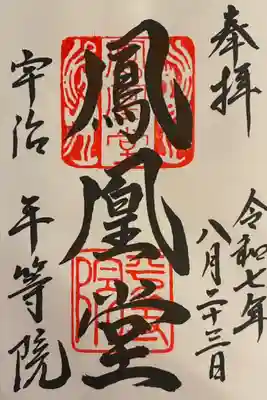 奉拝
令和七年
八月二十三日
鳳凰堂
宇治 平等院